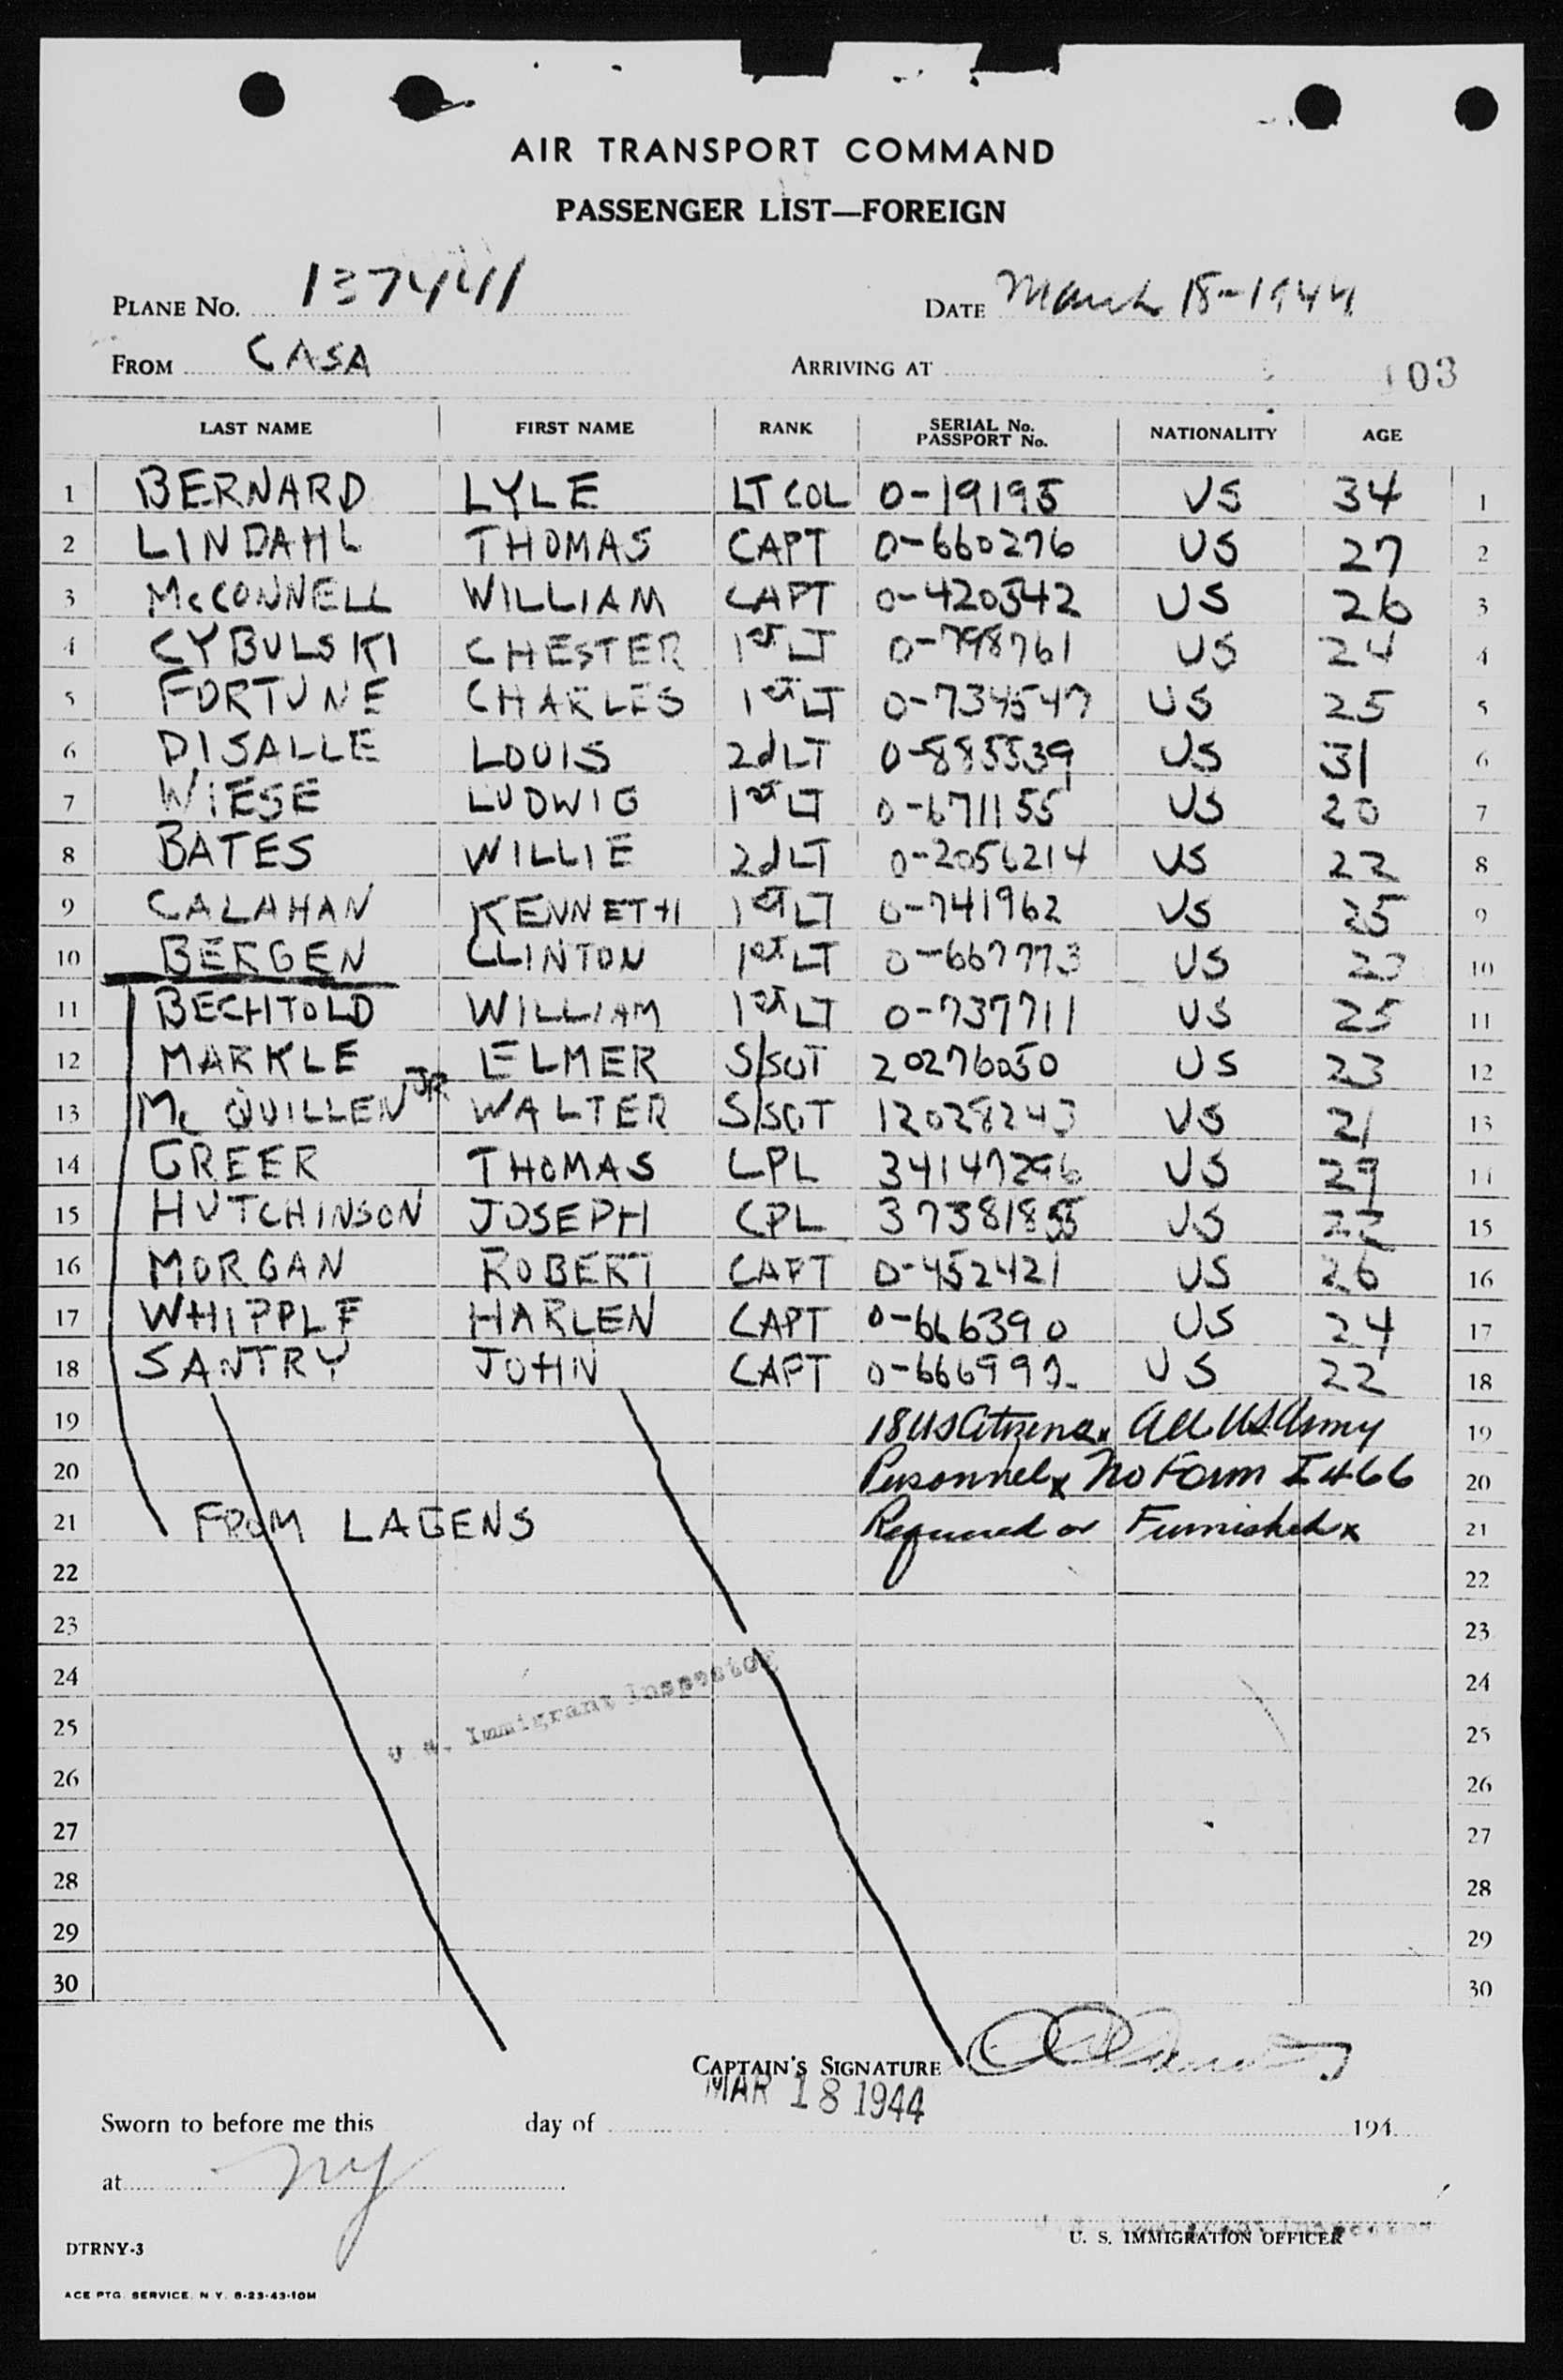 AIR TRANSPORT COMMAND
PASSENGER LIST—FOREIGN
PLANE NO. 137441 DATE March 18-1944
FROM CASA ARRIVING AT 103
LAST NAME FIRST NAME RANK SERIAL No. PASSPORT No. NATIONALITY AGE
1 BERNARD LYLE LT COL O-19195 US 34 1
2 LINDAHL THOMAS CAPT O-660276 US 27 2
3 McCONNELL WILLIAM CAPT O-420342 US 26 3
4 CYBULSKI CHESTER 1st LT O-798761 US 24 4
5 FORTUNE CHARLES 1st LT O-734547 US 25 5
6 DISALLE LOUIS 2d LT O-885539 US 31 6
7 WIESE LUDWIG 1st LT O-671155 US 20 7
8 BATES WILLIE 2d LT O-2056214 US 22 8
9 CALAHAN KENNETH 1st LT O-741962 US 25 9
10 BERGEN CLINTON 1st LT O-667773 US 10
11 BECHTOLD WILLIAM 1st LT O-737711 US 25 11
12 MARKLE ELMER S/SGT 20276050 US 23 12
13 Mc QUILLEN JR WALTER S/SGT 12028243 US 21 13
14 GREER THOMAS CPL 34147296 US 29 14
15 HUTCHINSON JOSEPH CPL 37381855 US 22 15
16 MORGAN ROBERT CAPT O-452421 US 26 16
17 WHIPPLE HARLEN CAPT O-666390 US 24 17
18 SANTRY JOHN CAPT O-666992 US 22 18
19 18 US Citizens x All US Army 19
20 Personnel x No Form I 466 20
21 FROM LAGENS Required or Furnished x 21
22 22
23 23
24 24
U. S. Immigrant Inspector
25 25
26 26
27 27
28 28
29 29
30 30
CAPTAIN'S SIGNATURE
MAR 18 1944
Sworn to before me this day of 194
at NY
U. S. Immigrant Inspector
U. S. IMMIGRATION OFFICER
DTRNY-3
ACE PTG. SERVICE. N. Y. 8-23-43-10M